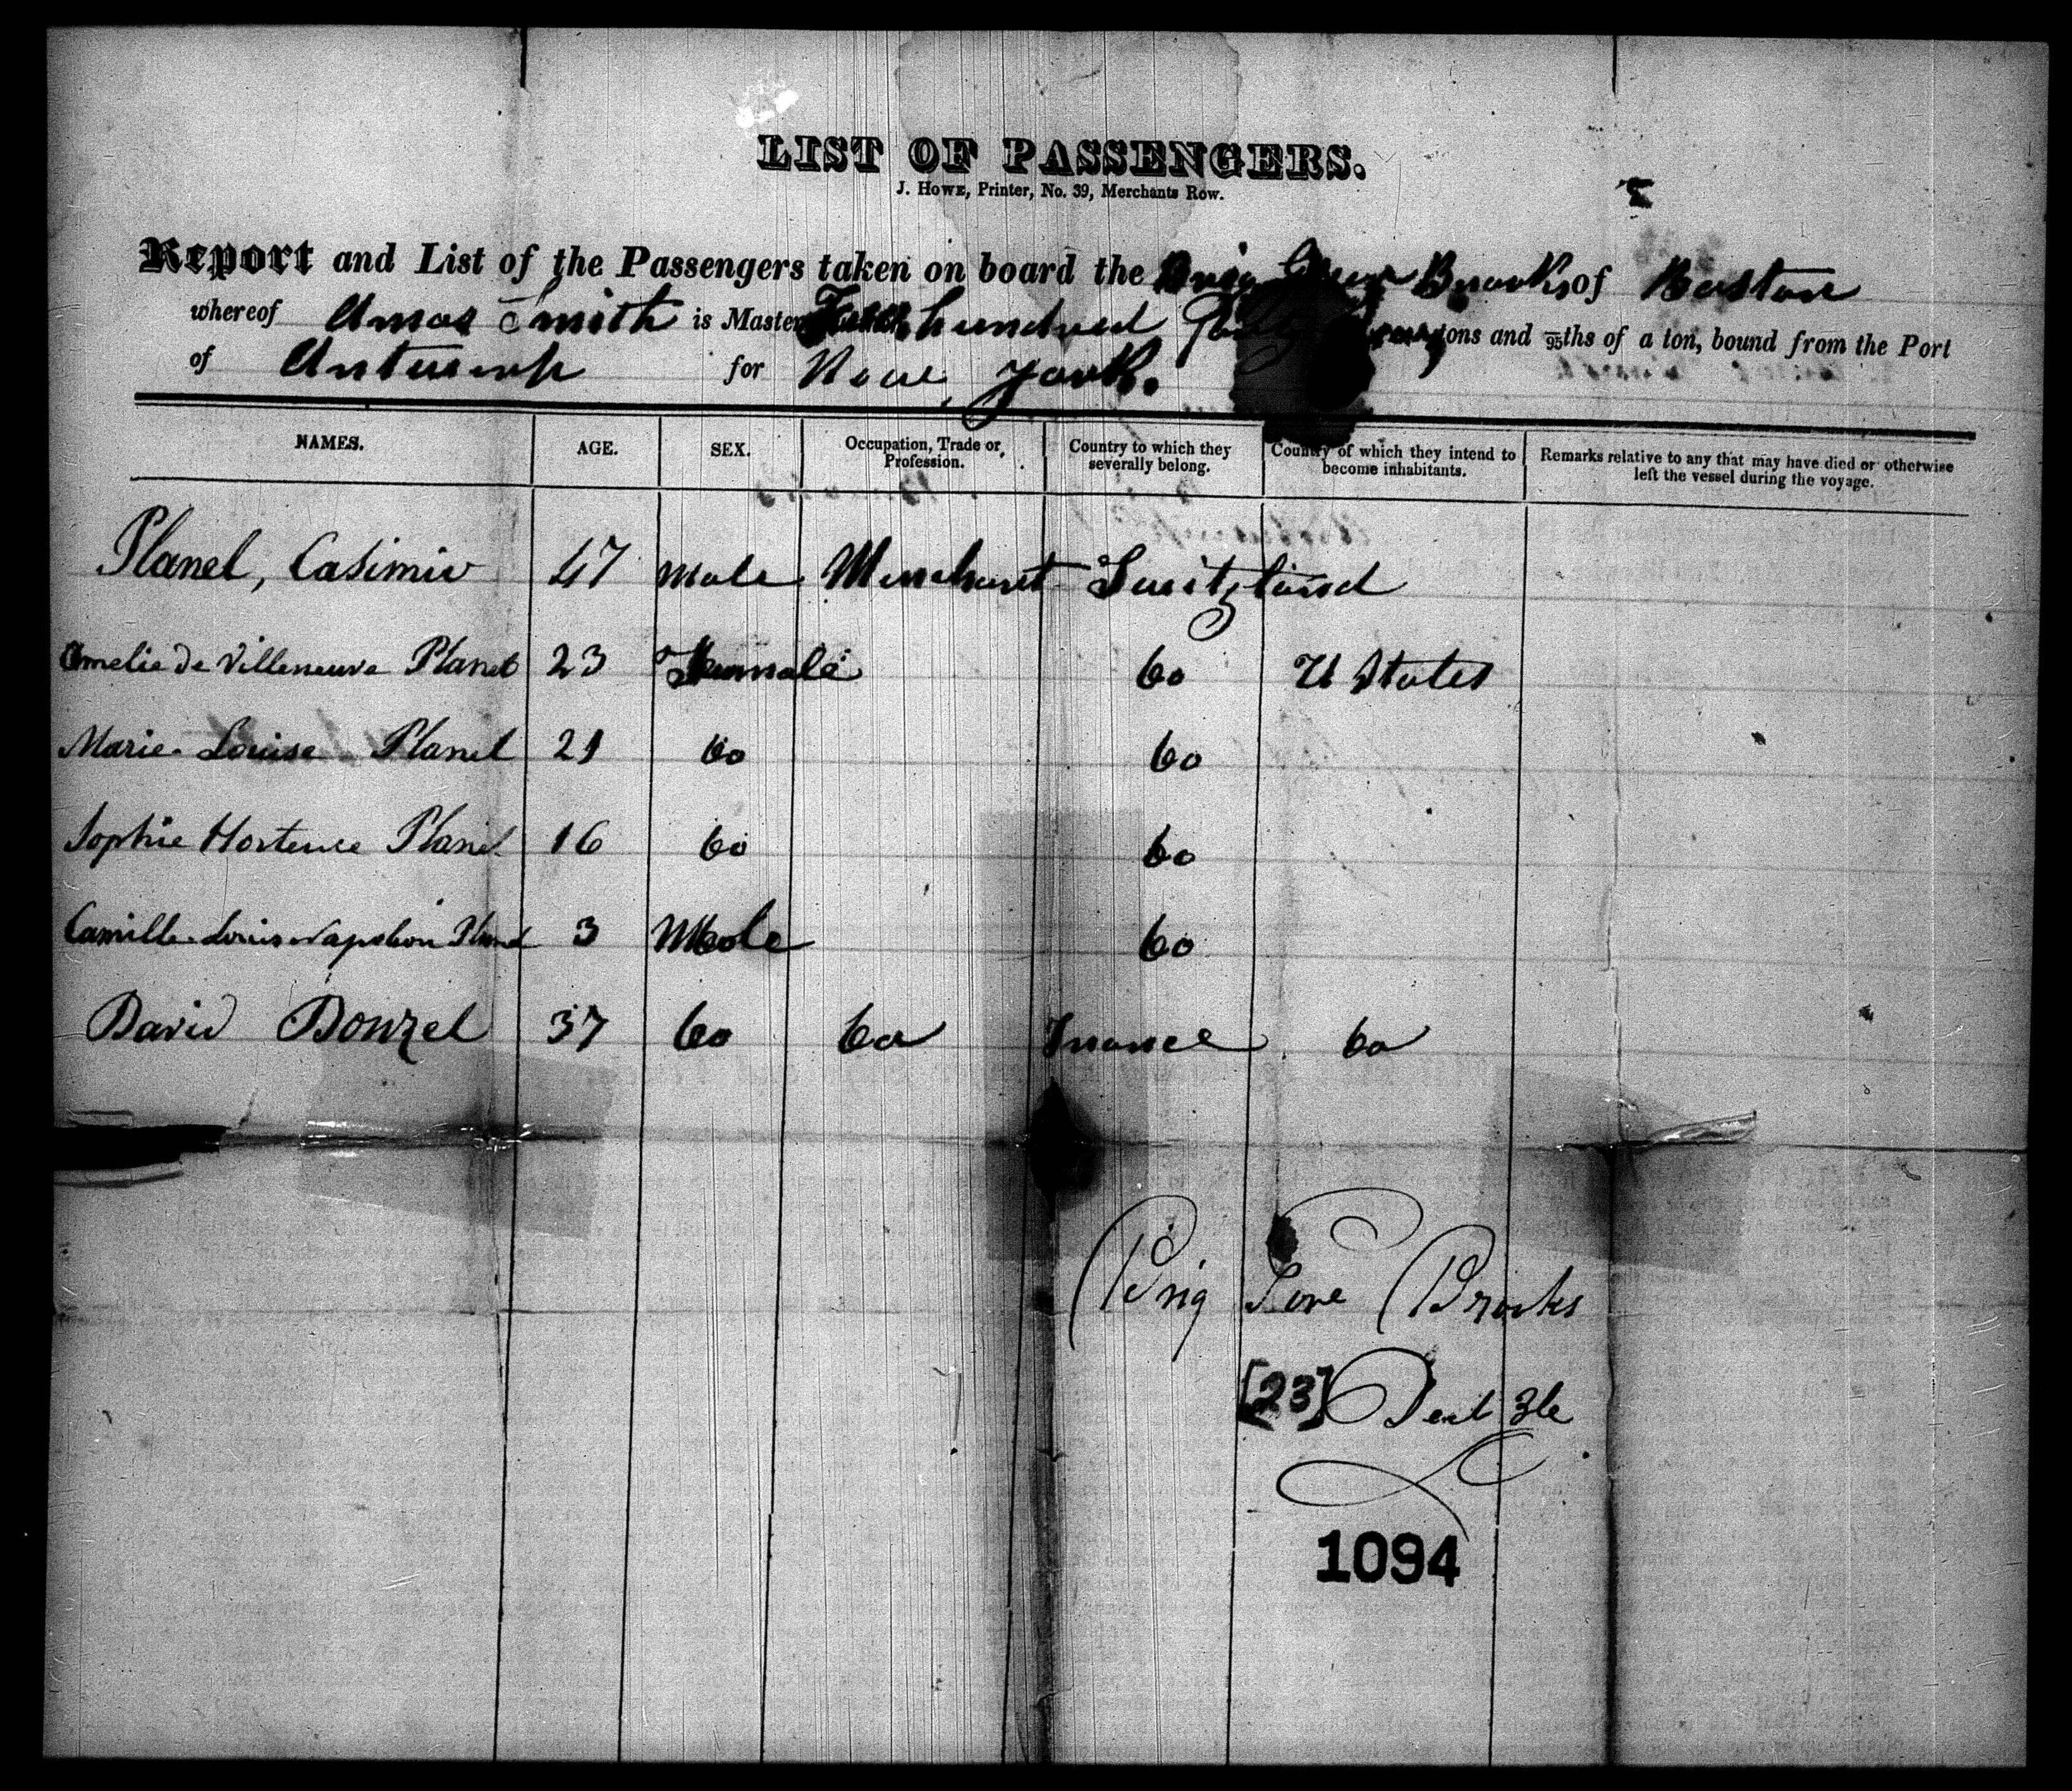 LIST OF PASSENGERS.
J. HOWE, Printer, No. 39, Merchants Row.
Report and List of the Passengers taken on board the Brig Brooks of Boston
whereof Amos Smith is Master hundred tons and 95ths of a ton, bound from the Port
of Antwerp for New York.
NAMES. AGE. SEX. Occupation, Trade or Profession. Country to which they severally belong. Country of which they intend to become inhabitants. Remarks relative to any that may have died or otherwise left the vessel during the voyage.
Planel, Casimir 47 Male Merchant Switzland
Amelie de Villeneuve Planel 23 Female Do U States
Marie Louise Planel 21 Do Do
Sophie Hortense Planel 16 Do Do
Camille Louis Napoleon Planel 3 Male Do
David Donzel 37 Do Do France Do
Brig Brooks
[23]
1094